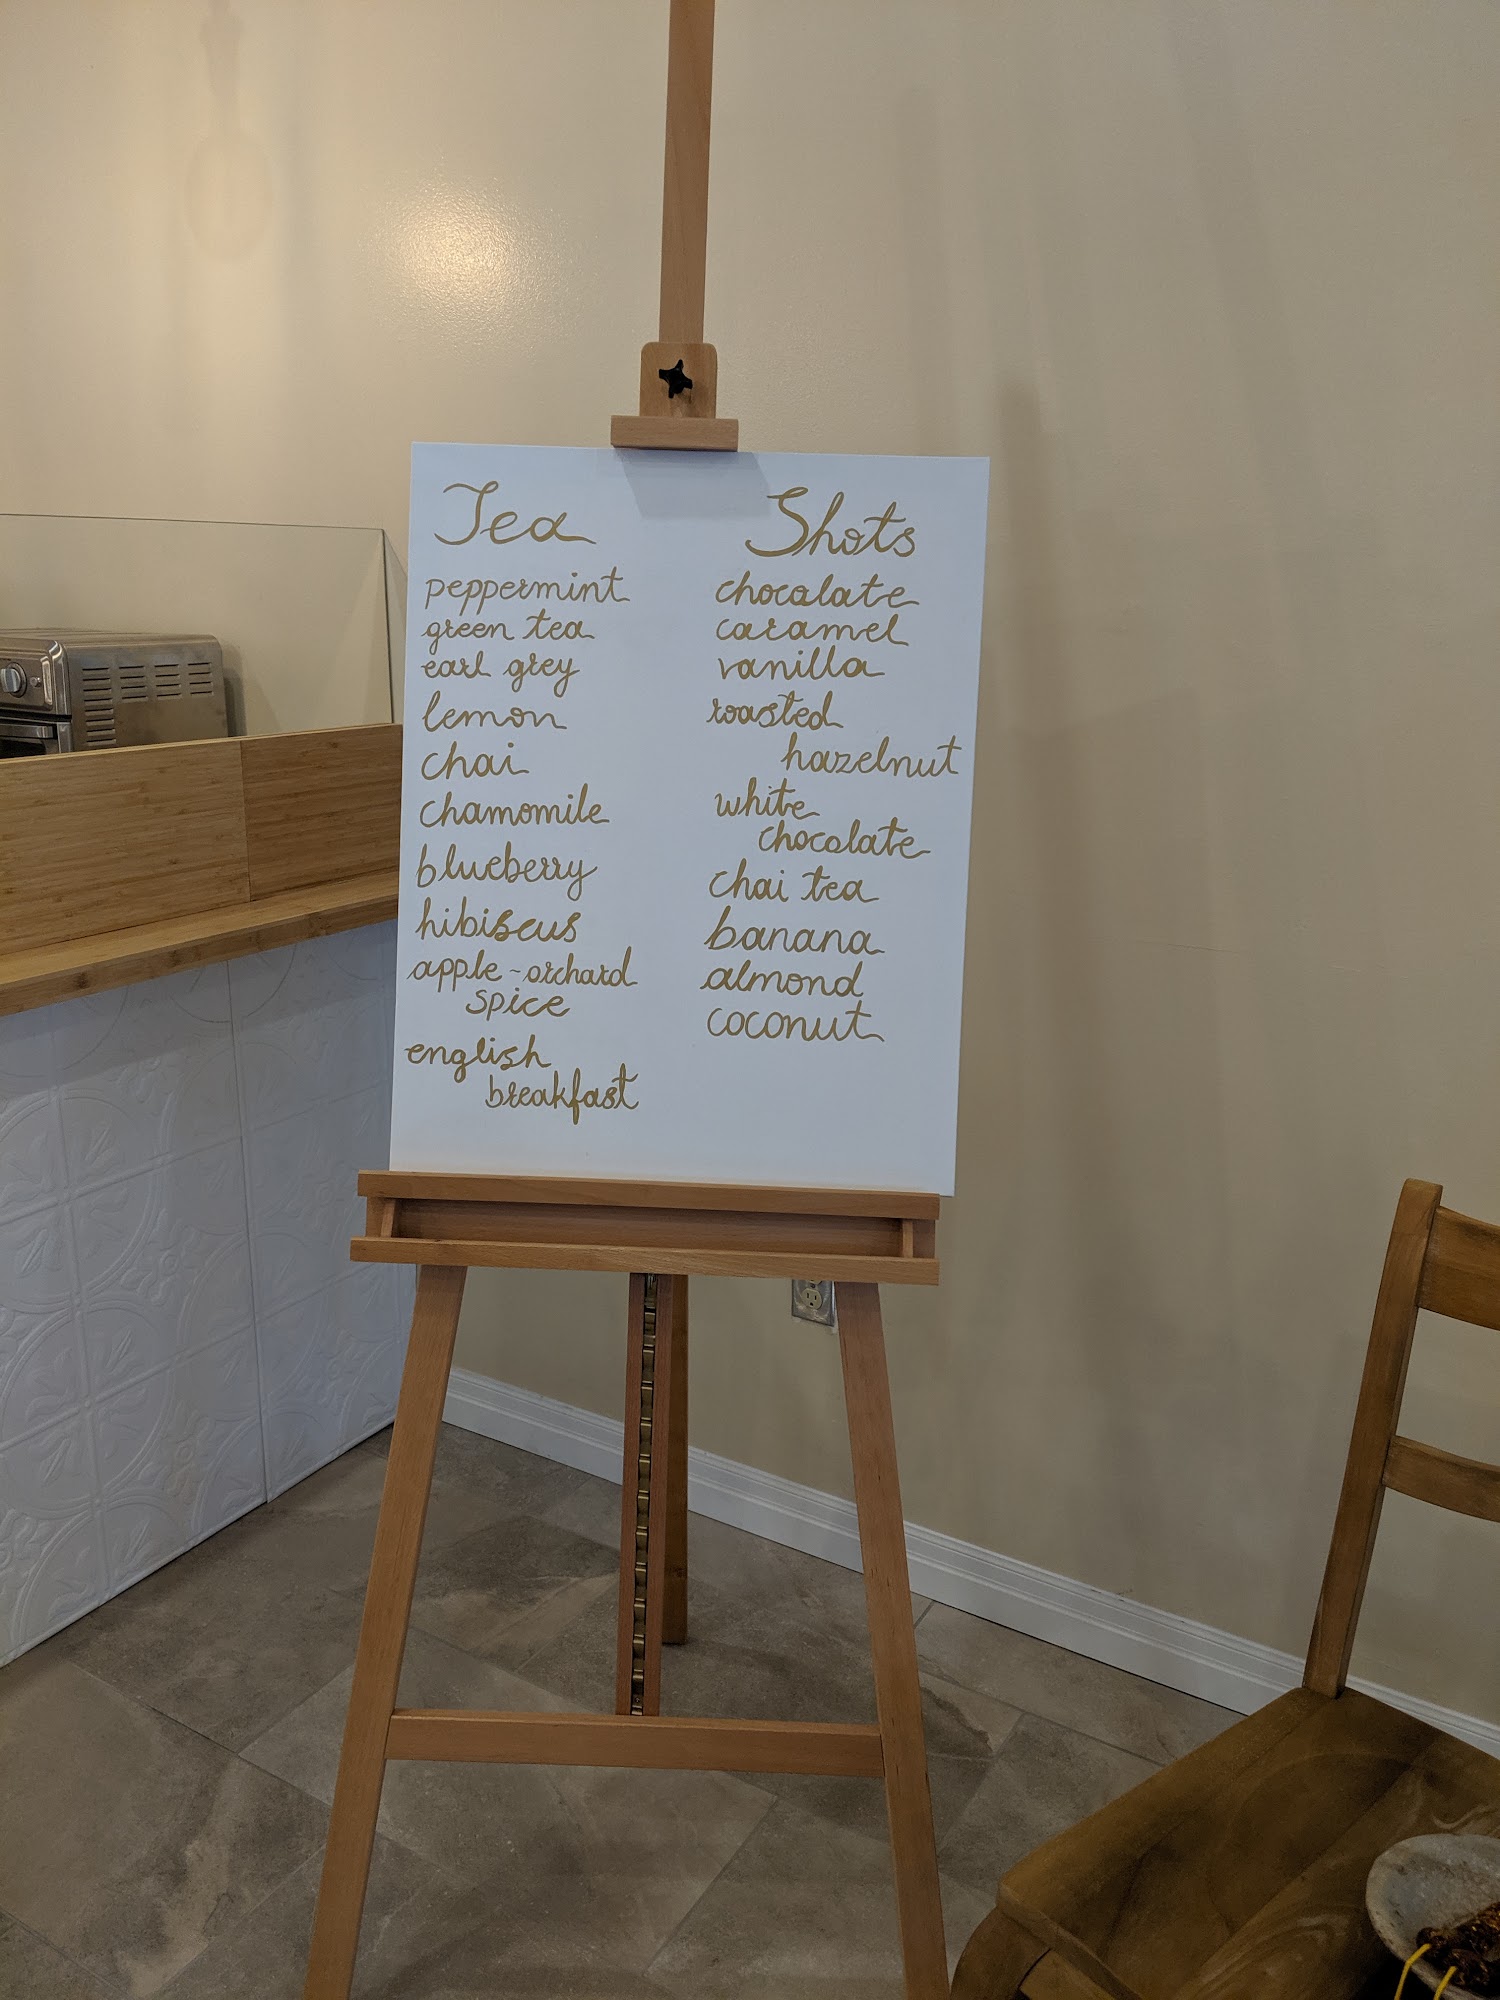 Tea
peppermint
green tea
earl grey
lemon
chai
chamomile
blueberry
hibiscus
apple-orchard
spice
english
breakfast
Shots
chocolate
caramel
vanilla
roasted
hazelnut
white
chocolate
chai tea
banana
almond
coconut